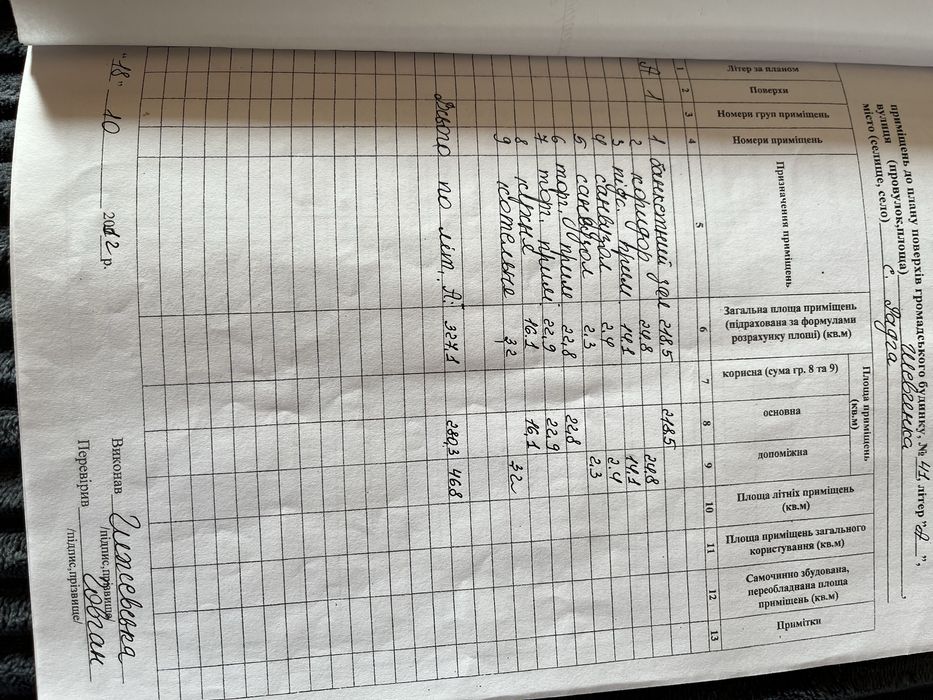 приміщень до плану поверхів громадського будинку, № 41, літер "А",
вулиця (провулок,площа) Шевченка
місто (селище, село) с.
Літер за планом
Поверхи
Номери груп приміщень
Номери приміщень
Призначення приміщень
Загальна площа приміщень (підрахована за формулами розрахунку площі) (кв.м)
Площа приміщень (кв.м)
корисна (сума гр. 8 та 9)
основна
допоміжна
Площа літніх приміщень (кв.м)
Площа приміщень загального користування (кв.м)
Самочинно збудована, переобладнана площа приміщень (кв.м)
Примітки
1 2 3 4 5 6 7 8 9 10 11 12 13
А 1 1 банкетний зал 218.5 218.5
2 коридор 24.8 24.8
3 підс. прим 14.1 14.1
4 санвузол 2.4 2.4
5 санвузол 2.3 2.3
6 тор. прим 22,8 22,8
7 тор. прим 22,9 22.9
8 кухня 16.1 16,1
9 котельня 3,2 3,2
Всього по літ. А: 327.1 280,3 46.8
"18" 10 2012 р.
Виконав
/підпис,прізвище/
Перевірив
/підпис,прізвище/